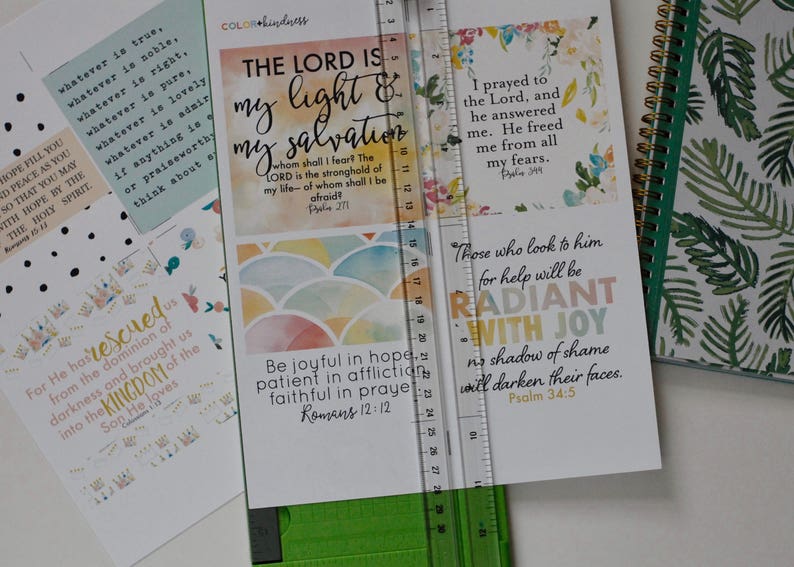 whatever is true,
whatever is noble,
whatever is right,
whatever is pure,
whatever is lovely
whatever is admir
if anything is e
or praiseworthy
think about su
HOPE FILL YOU
PEACE AS YOU
SO THAT YOU MAY
WITH HOPE BY THE
THE HOLY SPIRIT.
Romans 15:13
For He has rescued us
from the dominion of
darkness and brought us
into the KINGDOM of the
Son He loves
Colossians 1:13
COLOR+kindness
THE LORD IS
my light &
my salvation
whom shall I fear? The
LORD is the stronghold of
my life— of whom shall I be
afraid?
Psalm 27:1
I prayed to
the Lord, and
he answered
me. He freed
me from all
my fears.
Psalm 34:4
Be joyful in hope,
patient in affliction
faithful in praye
Romans 12:12
Those who look to him
for help will be
RADIANT
WITH JOY
no shadow of shame
will darken their faces.
Psalm 34:5